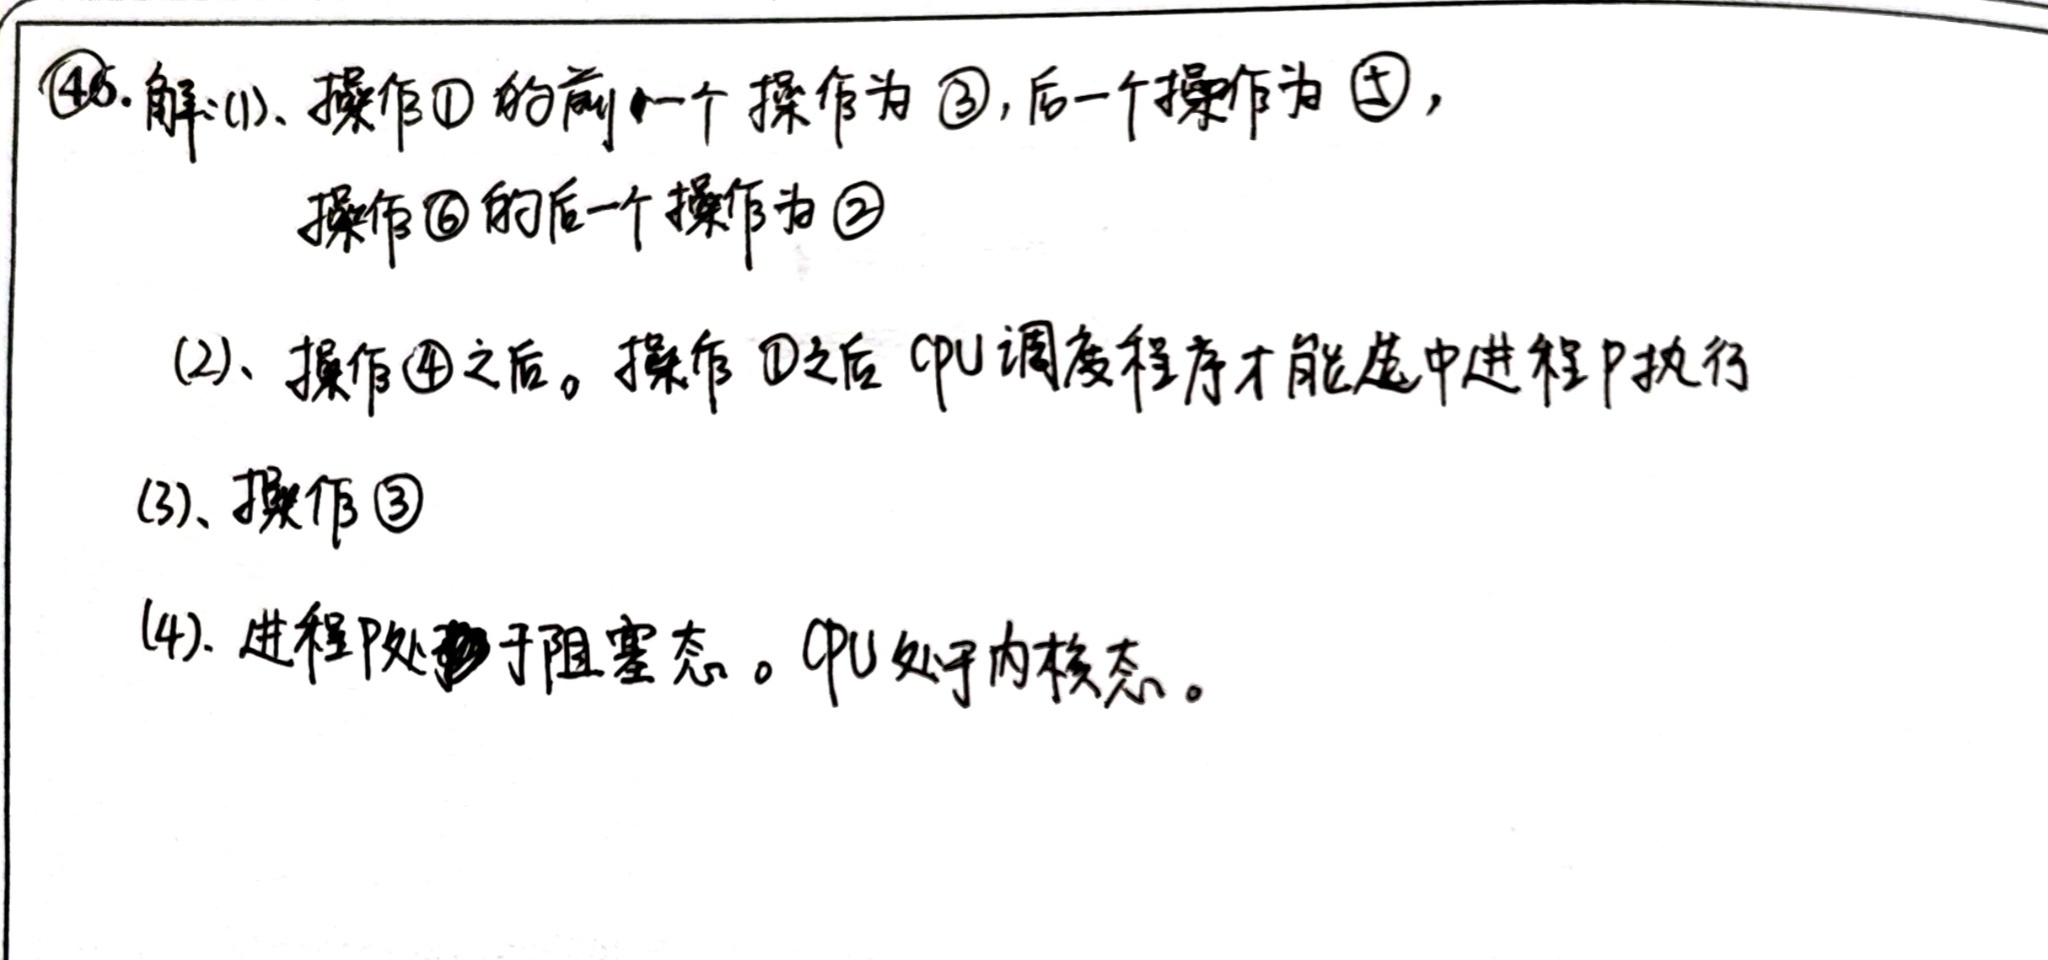 46.解:(1)、操作①的前一个操作为③,后一个操作为⑤,
操作⑥的后一个操作为②
(2)、操作④之后。操作①之后CPU调度程序才能选中进程P执行
(3)、操作③
(4).进程P处于阻塞态。CPU处于内核态。